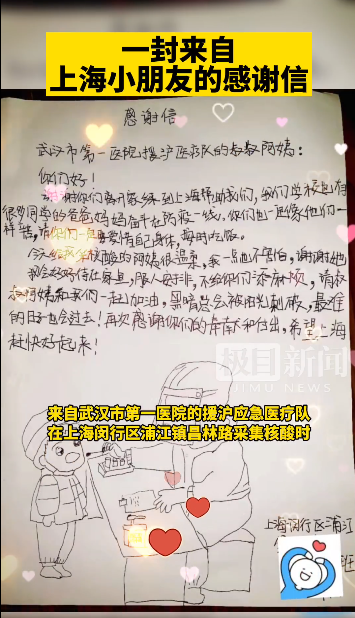 一封来自
上海小朋友的感谢信
感谢信
武汉市第一医院援沪医疗队的叔叔阿姨：
你们好！
谢谢你们离开家乡来到上海帮助我们，我们学校也有
很多同学的爸爸妈妈奋斗在防疫一线，你们也一定像他们一
样，请你们一定要爱惜自己身体，按时吃饭。
今天给我做核酸的阿姨很温柔，我一点也不害怕，谢谢她
我会好好待在家里，服从安排，不给你们添麻烦，请叔
叔阿姨和我们一起加油，黑暗总会被阳光刺破，最难
的日子也会过去！再次感谢你们的奉献和付出，希望上海
赶快好起来！
极目新闻
JIMU NEWS
来自武汉市第一医院的援沪应急医疗队
在上海闵行区浦江镇昌林路采集核酸时
上海闵行区浦江
班